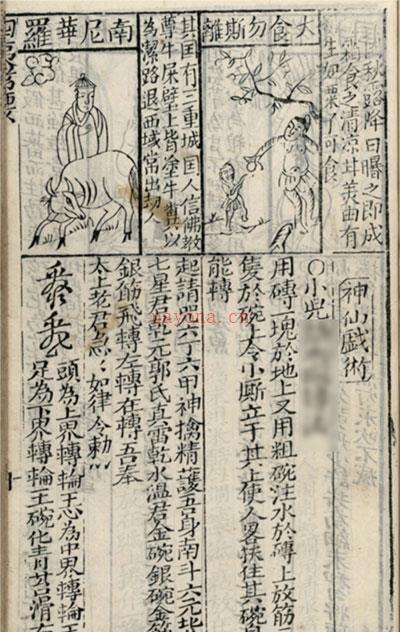 秋露降日曬之即成
霜食之清凉甘美曲有
生如粟了可食
大食勿斯離
其国有三重城国人信佛教
尊牛屎壁上皆塗牛糞其以
為潔路退西域常出刼人
南尼華羅
神仙戯術
〇小兒
用磚一塊於地上又用粗碗注水於磚上放筋
隻於碗上令小厮立于其上使人畧扶住其碗自
能轉
起請咒六丁六甲神擒精護吾身南斗六元北
七星君乾元郭氏真雷乾水溫君金碗銀碗金筋
銀筋飛轉左轉在轉吾奉
太上老君急〻如律令勅〻
頭為上界轉輪王心為中界轉輪
足為下界轉輪王碗化青苔滑石